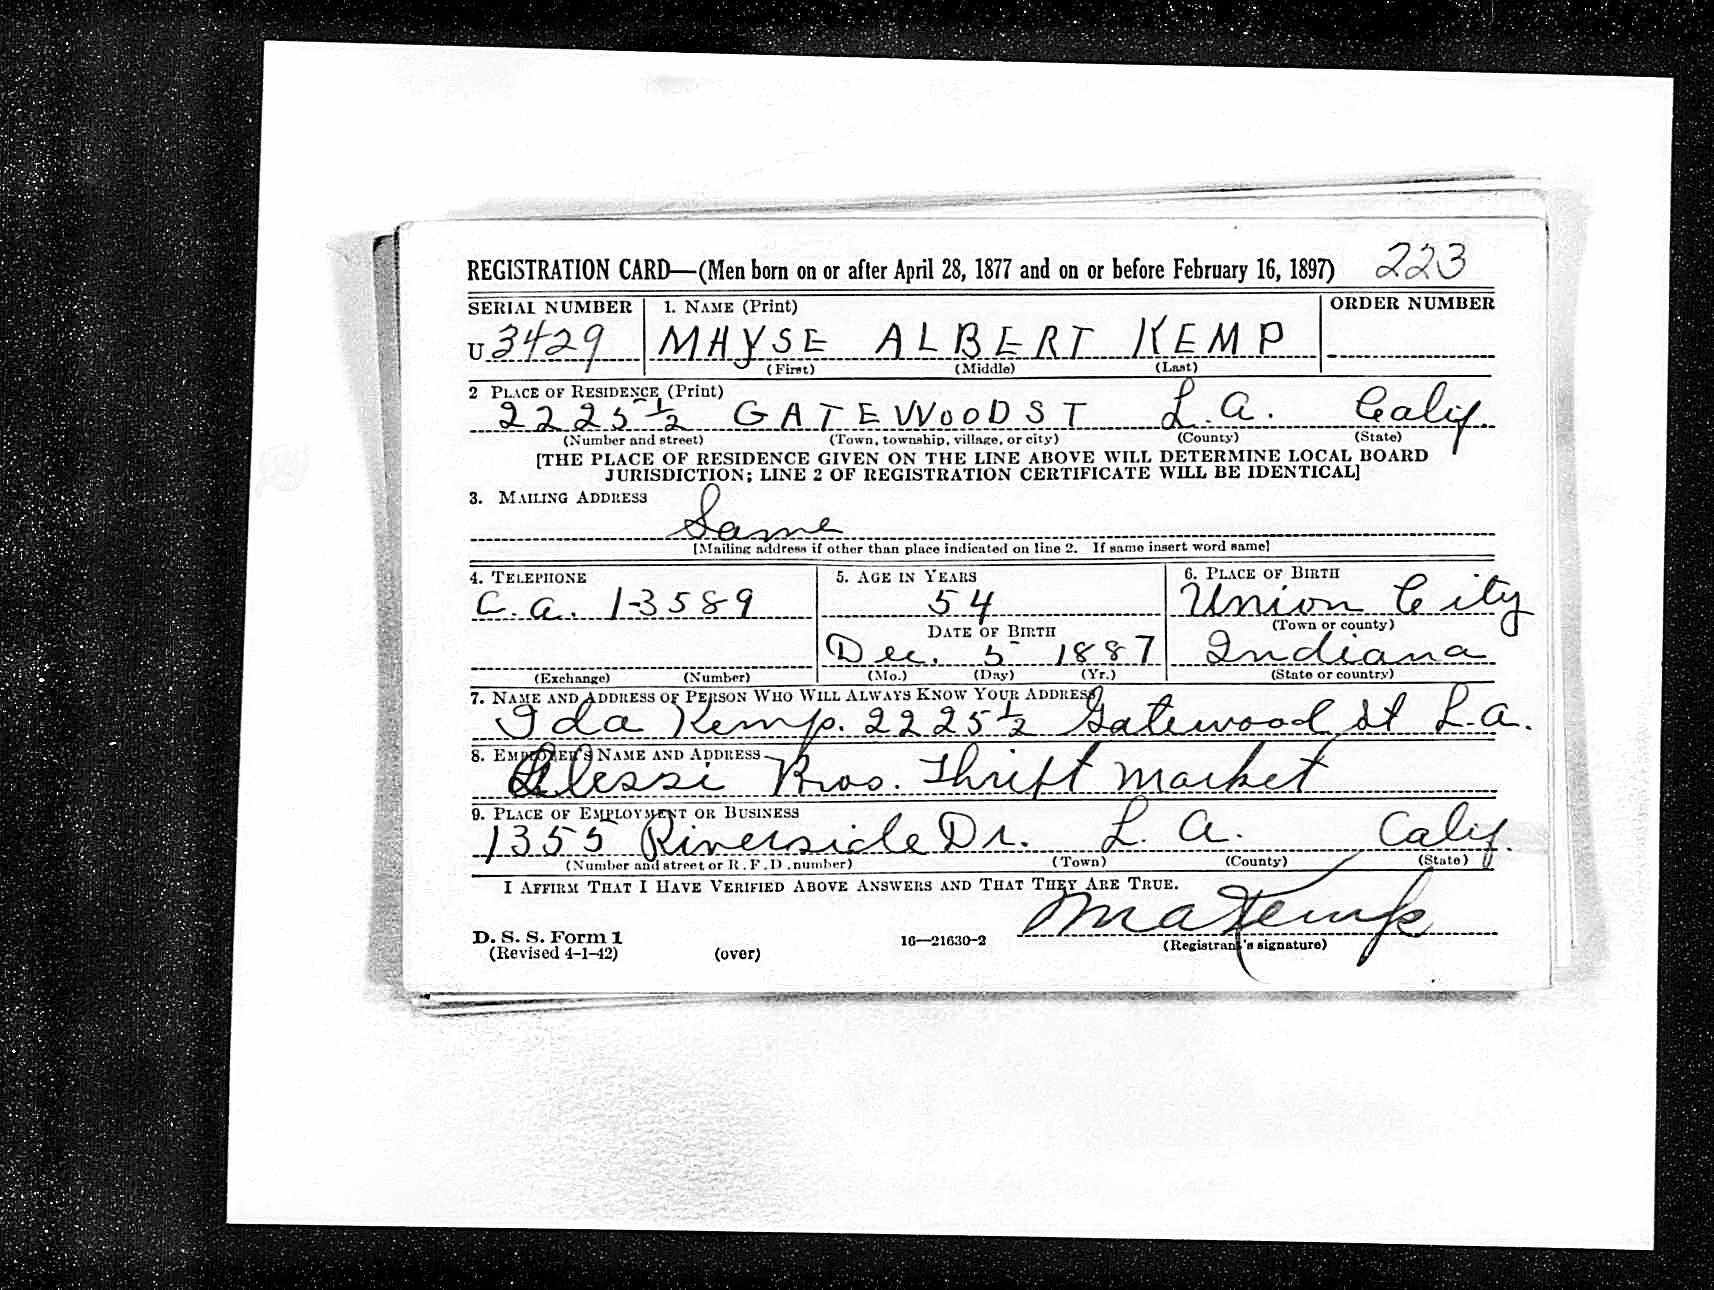 REGISTRATION CARD—(Men born on or after April 28, 1877 and on or before February 16, 1897) 223
SERIAL NUMBER 1. NAME (Print) ORDER NUMBER
U 3429 MAYSE ALBERT KEMP
(First) (Middle) (Last)
2 PLACE OF RESIDENCE (Print)
2225 1/2 GATEWOOD ST L.A. Calif.
(Number and street) (Town, township, village, or city) (County) (State)
[THE PLACE OF RESIDENCE GIVEN ON THE LINE ABOVE WILL DETERMINE LOCAL BOARD
JURISDICTION; LINE 2 OF REGISTRATION CERTIFICATE WILL BE IDENTICAL]
3. MAILING ADDRESS
Same
[Mailing address if other than place indicated on line 2. If same insert word same]
4. TELEPHONE 5. AGE IN YEARS 6. PLACE OF BIRTH
C.A. 1-3589 54 Union City
(Town or county)
DATE OF BIRTH
Dec. 5 1887 Indiana
(Exchange) (Number) (Mo.) (Day) (Yr.) (State or country)
7. NAME AND ADDRESS OF PERSON WHO WILL ALWAYS KNOW YOUR ADDRESS
Ida Kemp. 2225 1/2 Gatewood St L.A.
8. EMPLOYER'S NAME AND ADDRESS
Alessi Bros. Thrift Market
9. PLACE OF EMPLOYMENT OR BUSINESS
1355 Riverside Dr. L. A. Calif.
(Number and street or R. F. D. number) (Town) (County) (State)
I AFFIRM THAT I HAVE VERIFIED ABOVE ANSWERS AND THAT THEY ARE TRUE.
M A Kemp
D. S. S. Form 1
(Revised 4-1-42) (over) 16—21630-2 (Registrant's signature)